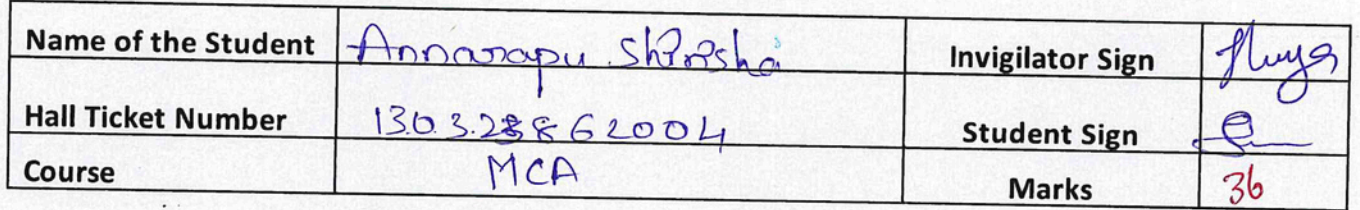 Name of the Student Annarapu Shirisha Invigilator Sign
Hall Ticket Number 130328862004 Student Sign
Course MCA Marks 36